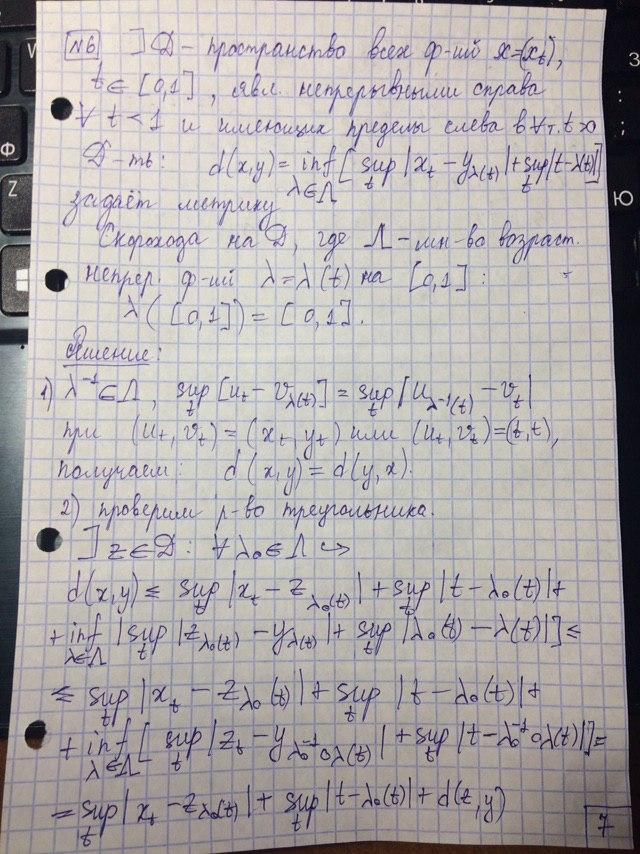 №6 ] D - пространство всех ф-ий x=(x_t),
t ∈ [0,1], явл. непрерывными справа
∀ t < 1 и имеющих пределы слева в ∀ т. t > 0
D-ть: d(x,y) = inf_{λ∈Λ} [ sup_t |x_t - y_{λ(t)}| + sup_t |t-λ(t)| ]
задаёт метрику
Скорохода на D, где Λ - мн-во возраст.
непрер. ф-ий λ = λ(t) на [0,1] :
λ([0,1]) = [0,1].
Решение:
1) λ^{-1} ∈ Λ, sup_t [u_t - v_{λ(t)}] = sup_t |u_{λ^{-1}(t)} - v_t|
при (u_t, v_t) = (x_t, y_t) или (u_t, v_t) = (t, t),
получаем: d(x,y) = d(y,x).
2) проверим н-во треугольника.
] z ∈ D : ∀ λ_0 ∈ Λ ↪
d(x,y) ≤ sup_t |x_t - z_{λ_0(t)}| + sup_t |t - λ_0(t)| +
+ inf_{λ∈Λ} |sup_t |z_{λ_0(t)} - y_{λ(t)}| + sup_t |λ_0(t) - λ(t)|] ≤
≤ sup_t |x_t - z_{λ_0(t)}| + sup_t |t - λ_0(t)| +
+ inf_{λ∈Λ} [ sup_t |z_t - y_{λ_0^{-1}∘λ(t)}| + sup_t |t - λ_0^{-1}∘λ(t)|] =
= sup_t |x_t - z_{λ_0(t)}| + sup_t |t - λ_0(t)| + d(z,y)
7
Z
Ю